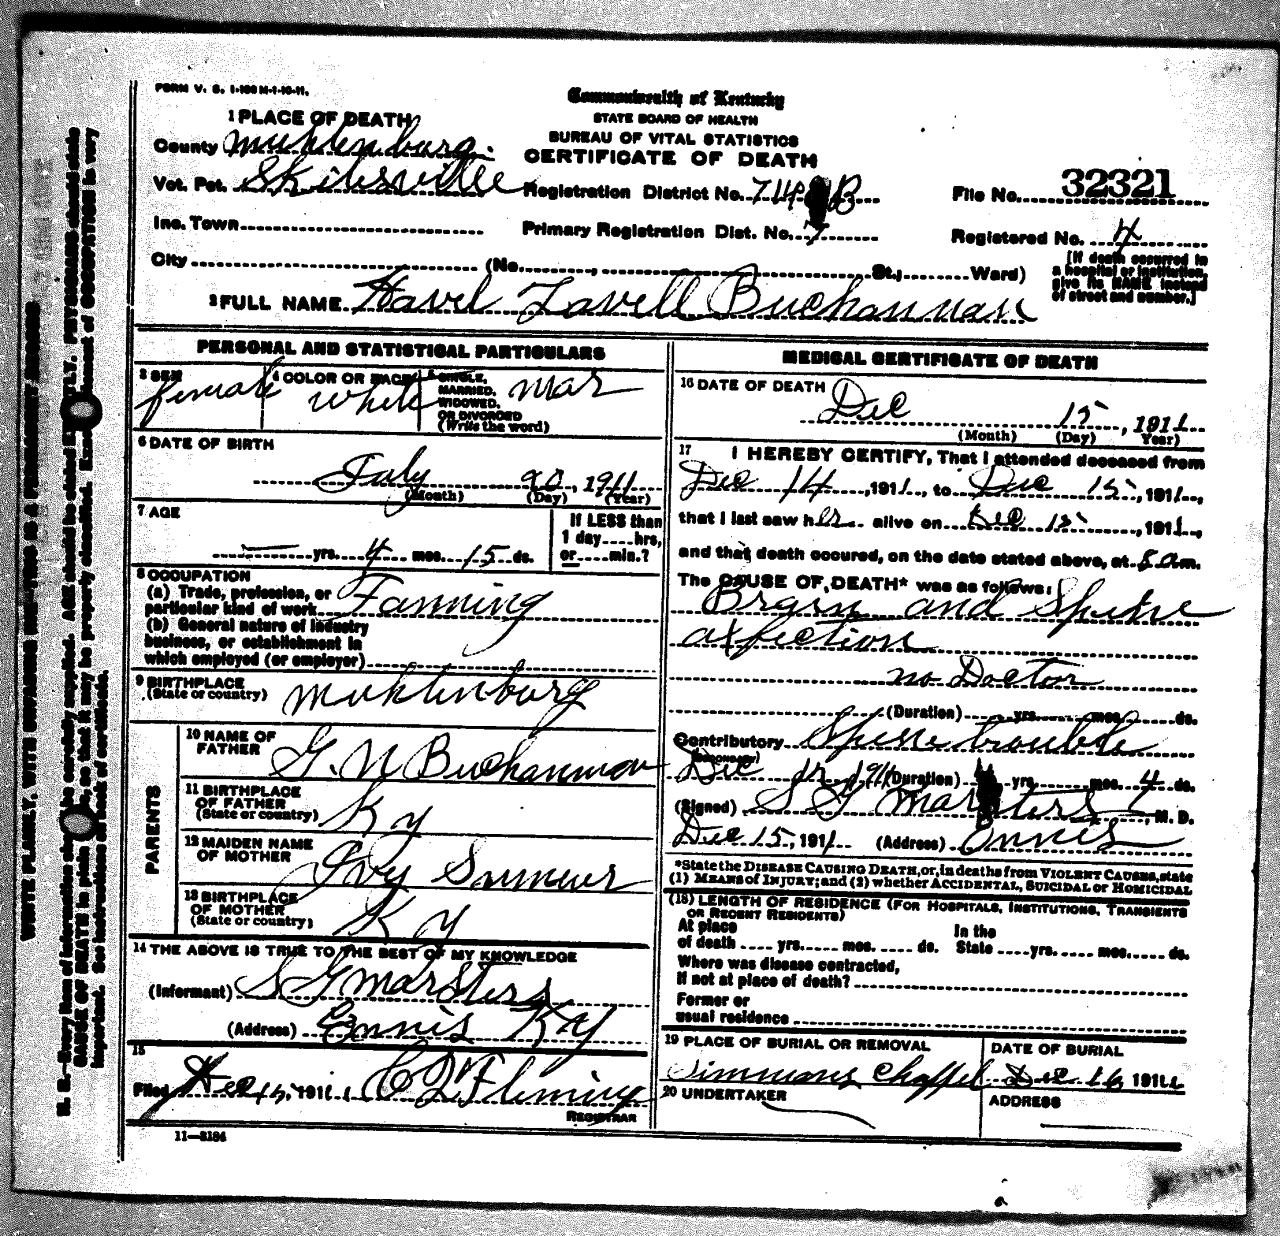 FORM V. S. 1-100 M-1-10-11.
Commonwealth of Kentucky
STATE BOARD OF HEALTH
BUREAU OF VITAL STATISTICS
CERTIFICATE OF DEATH
1 PLACE OF DEATH
County Muhlenburg.
Vot. Pct. Skilesville
Registration District No. 714 B
File No. 32321
Inc. Town
Primary Registration Dist. No. 7
Registered No. 4
City (No. , St., Ward)
[If death occurred in
a hospital or institution,
give its NAME instead
of street and number.]
2 FULL NAME Havel Lavell Buchannan
PERSONAL AND STATISTICAL PARTICULARS
3 SEX female
4 COLOR OR RACE white
5 SINGLE,
MARRIED,
WIDOWED,
OR DIVORCED
(Write the word)
mar
6 DATE OF BIRTH
July 20, 1911
(Month) (Day) (Year)
7 AGE
yrs. 4 mos. 15 ds.
If LESS than
1 day....hrs,
or....min.?
8 OCCUPATION
(a) Trade, profession, or
particular kind of work Farming
(b) General nature of industry
business, or establishment in
which employed (or employer)
9 BIRTHPLACE
(State or country) Muhlenburg
PARENTS
10 NAME OF
FATHER G. N Buchannan
11 BIRTHPLACE
OF FATHER
(State or country) Ky
12 MAIDEN NAME
OF MOTHER Ivy Sumner
13 BIRTHPLACE
OF MOTHER
(State or country) Ky
14 THE ABOVE IS TRUE TO THE BEST OF MY KNOWLEDGE
(Informant) S G Marsters
(Address) Ennis Ky
15
Filed Dec 15, 1911 Fleming
REGISTRAR
11—3184
MEDICAL CERTIFICATE OF DEATH
16 DATE OF DEATH
Dec 15, 1911
(Month) (Day) Year)
17 I HEREBY CERTIFY, That I attended deceased from
Dec 14, 1911, to Dec 15, 1911,
that I last saw her alive on Dec 15, 1911,
and that death occured, on the date stated above, at 8 am.
The CAUSE OF DEATH* was as follows:
Brain and Spine
affection
no Doctor
(Duration) yrs. mos. ds.
Contributory Spine trouble
(SECONDARY)
Dec 15 1911 (Duration) yrs. mos. 4 ds.
(Signed) S G Marsters, M. D.
Dec 15, 1911 (Address) Ennis
*State the DISEASE CAUSING DEATH, or, in deaths from VIOLENT CAUSES, state
(1) MEANS of INJURY; and (2) whether ACCIDENTAL, SUICIDAL or HOMICIDAL
(18) LENGTH OF RESIDENCE (FOR HOSPITALS, INSTITUTIONS, TRANSIENTS
OR RECENT RESIDENTS)
At place
of death .... yrs..... mos. .... ds.
In the
State ....yrs..... mos..... ds.
Where was disease contracted,
If not at place of death?
Former or
usual residence
19 PLACE OF BURIAL OR REMOVAL
Simmons Chappel
DATE OF BURIAL
Dec 16, 1911
20 UNDERTAKER
ADDRESS
WRITE PLAINLY, WITH UNFADING INK—THIS IS A PERMANENT RECORD
N. B.—Every item of information should be carefully supplied. AGE should be stated EXACTLY. PHYSICIANS should state
CAUSE OF DEATH in plain terms, so that it may be properly classified. Exact statement of OCCUPATION is very
important. See instructions on back of certificate.